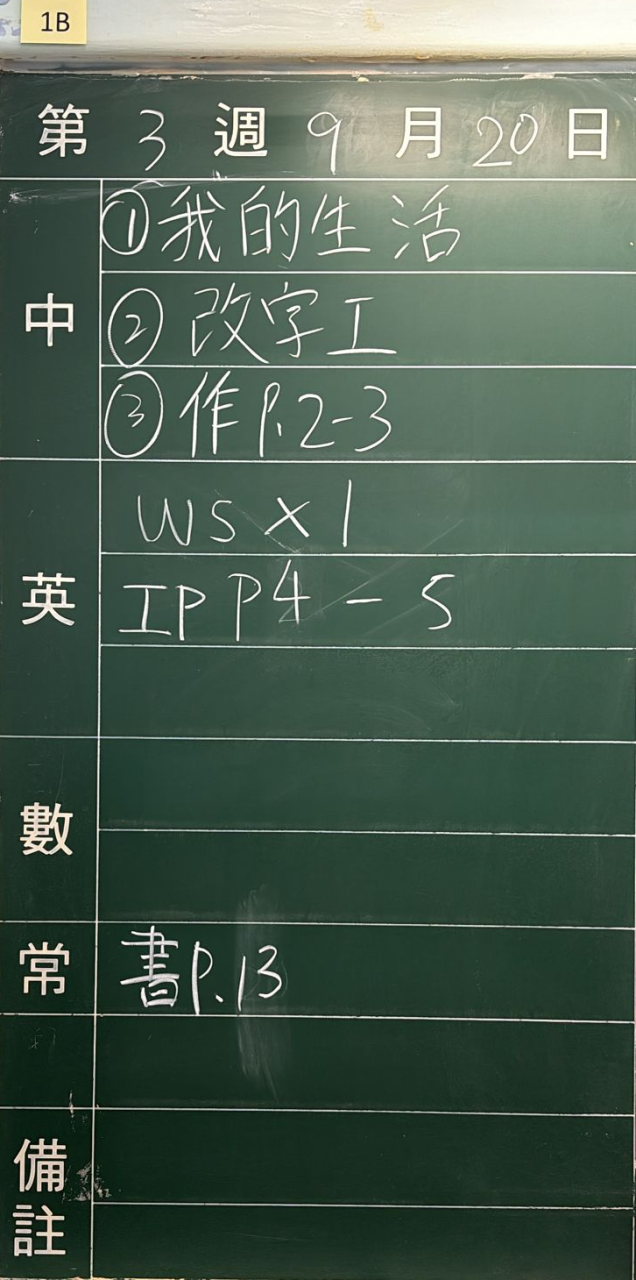 1B
第 3 週 9 月 20 日
中
①我的生活
②改字工
③作P.2-3
英
WS×1
IP P4-5
數
常
書P.13
備註